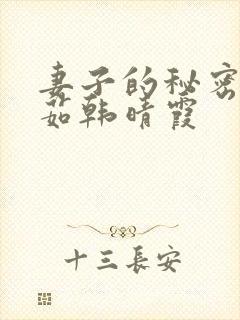 妻子的秘密
茹韩晴霞
十三長安